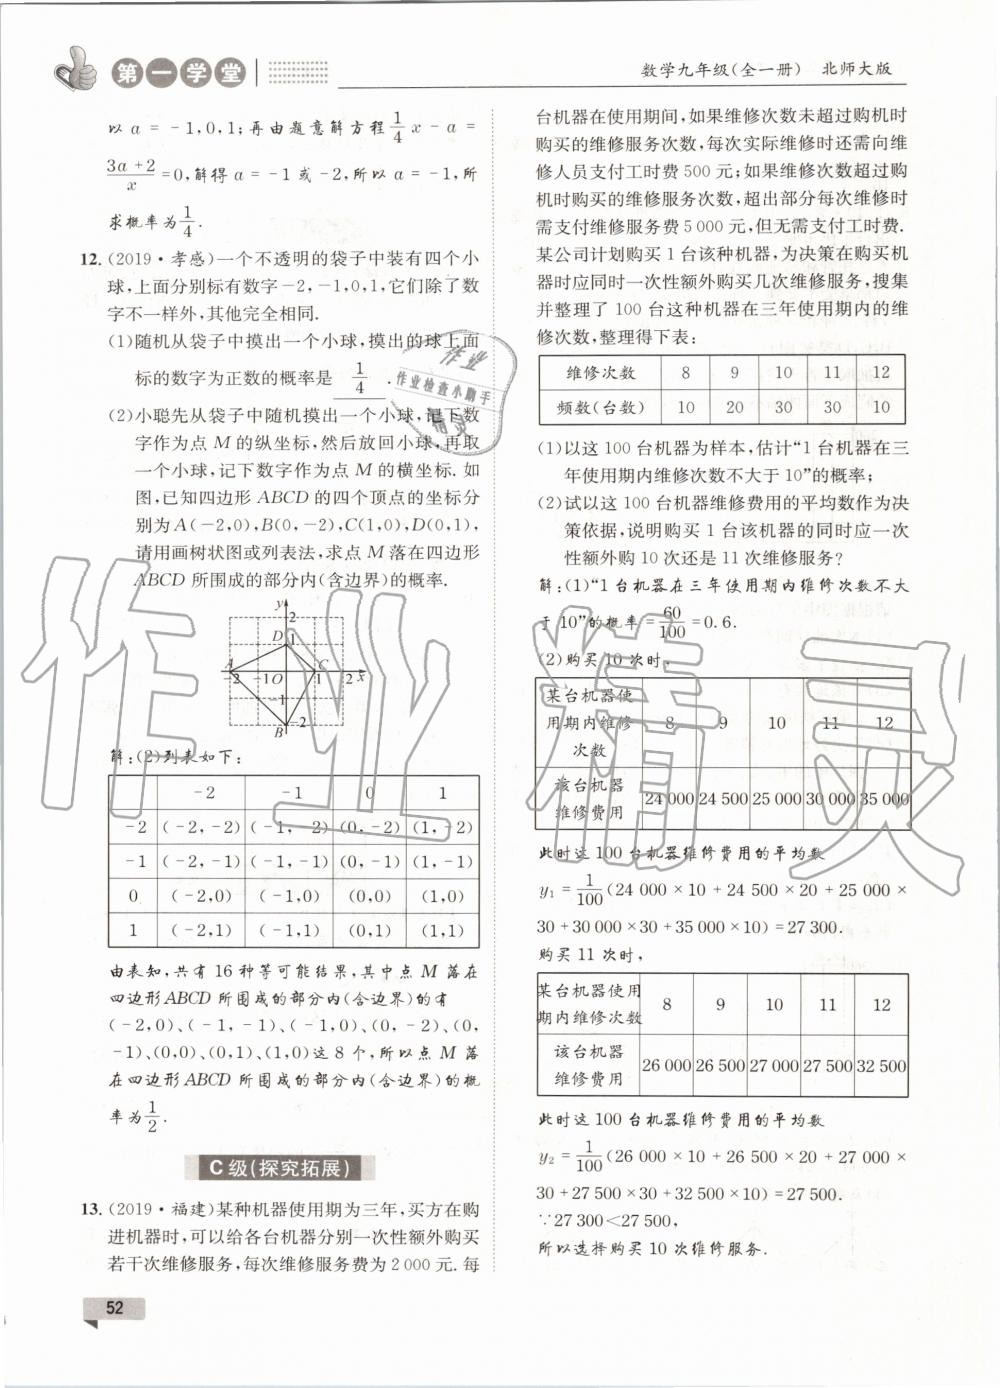 第一学堂
数学九年级(全一册) 北师大版
以 a = -1,0,1;再由题意解方程 1/4 x - a =
(3a+2)/x =0,解得 a = -1 或 -2,所以 a = -1,所
求概率为 1/4.
12.(2019·孝感)一个不透明的袋子中装有四个小
球,上面分别标有数字-2,-1,0,1,它们除了数
字不一样外,其他完全相同.
(1)随机从袋子中摸出一个小球,摸出的球上面
标的数字为正数的概率是 1/4 .
(2)小聪先从袋子中随机摸出一个小球,记下数
字作为点 M 的纵坐标,然后放回小球,再取
一个小球,记下数字作为点 M 的横坐标. 如
图,已知四边形 ABCD 的四个顶点的坐标分
别为 A(-2,0),B(0,-2),C(1,0),D(0,1),
请用画树状图或列表法,求点 M 落在四边形
ABCD 所围成的部分内(含边界)的概率.
y 2
D 1
A C
-2 -1 O 1 2 x
-1
-2
B
解:(2)列表如下:
-2 -1 0 1
-2 (-2,-2) (-1,-2) (0,-2) (1,-2)
-1 (-2,-1) (-1,-1) (0,-1) (1,-1)
0 (-2,0) (-1,0) (0,0) (1,0)
1 (-2,1) (-1,1) (0,1) (1,1)
由表知,共有 16 种等可能结果,其中点 M 落在
四边形 ABCD 所围成的部分内(含边界)的有
(-2,0)、(-1,-1)、(-1,0)、(0,-2)、(0,
-1)、(0,0)、(0,1)、(1,0)这 8 个,所以点 M 落
在四边形 ABCD 所围成的部分内(含边界)的概
率为 1/2.
C 级(探究拓展)
13.(2019·福建)某种机器使用期为三年,买方在购
进机器时,可以给各台机器分别一次性额外购买
若干次维修服务,每次维修服务费为 2 000 元. 每
52
台机器在使用期间,如果维修次数未超过购机时
购买的维修服务次数,每次实际维修时还需向维
修人员支付工时费 500 元;如果维修次数超过购
机时购买的维修服务次数,超出部分每次维修时
需支付维修服务费 5 000 元,但无需支付工时费.
某公司计划购买 1 台该种机器,为决策在购买机
器时应同时一次性额外购买几次维修服务,搜集
并整理了 100 台这种机器在三年使用期内的维
修次数,整理得下表:
维修次数 8 9 10 11 12
频数(台数) 10 20 30 30 10
(1)以这 100 台机器为样本,估计“1 台机器在三
年使用期内维修次数不大于 10”的概率;
(2)试以这 100 台机器维修费用的平均数作为决
策依据,说明购买 1 台该机器的同时应一次
性额外购 10 次还是 11 次维修服务?
解:(1)“1 台机器在三年使用期内维修次数不大
于 10”的概率 = 60/100 = 0.6.
(2)购买 10 次时,
某台机器使
用期内维修 8 9 10 11 12
次数
该台机器
维修费用 24 000 24 500 25 000 30 000 35 000
此时这 100 台机器维修费用的平均数
y₁ = 1/100 (24 000 × 10 + 24 500 × 20 + 25 000 ×
30 + 30 000 × 30 + 35 000 × 10) = 27 300.
购买 11 次时,
某台机器使用
期内维修次数 8 9 10 11 12
该台机器
维修费用 26 000 26 500 27 000 27 500 32 500
此时这 100 台机器维修费用的平均数
y₂ = 1/100 (26 000 × 10 + 26 500 × 20 + 27 000 ×
30 + 27 500 × 30 + 32 500 × 10) = 27 500.
∵27 300<27 500,
所以选择购买 10 次维修服务.
作业
作业检查小助手
精灵
作业精灵